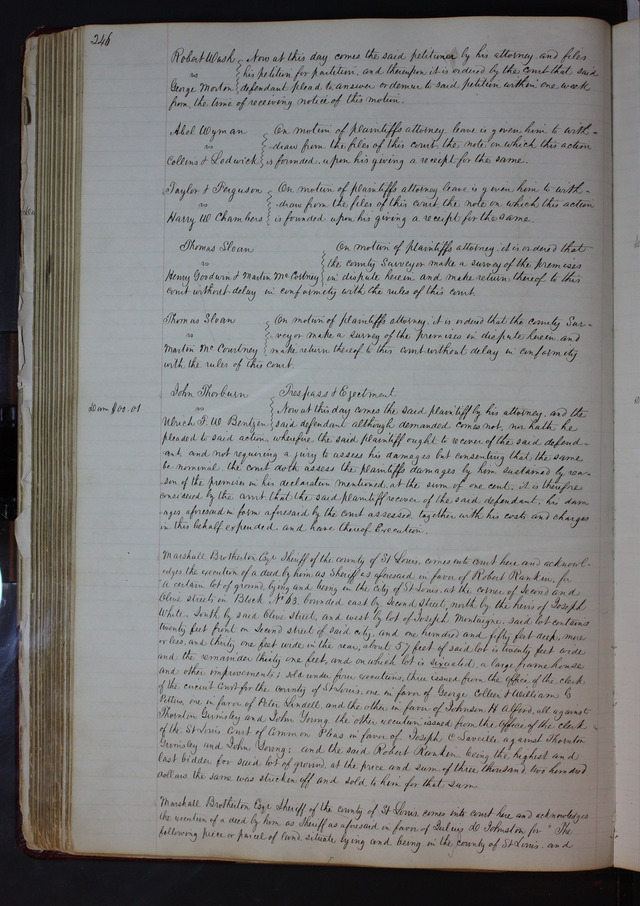 246
Robert Wash } Now at this day comes the said petitioner by his attorney and files
vs } his petition for partition, and thereupon it is ordered by the Court that said
George Morton } defendant plead to answer or demur to said petition within one week
from the time of receiving notice of this motion.
Abel Wyman } On motion of plaintiffs attorney leave is given him to with-
vs } draw from the files of this court, the note, on which this action
Collins & Lodwick } is founded, upon his giving a receipt for the same.
Taylor & Ferguson } On motion of plaintiffs attorney leave is given him to with-
vs } draw from the files of this court the note on which this action
Harry W Chambers } is founded upon his giving a receipt for the same
Thomas Sloan } On motion of plaintiffs attorney, it is ordered that
vs } the county Surveyor make a survey of the premises
Henry Goodwin & Martin McCortney } in dispute herein and make return thereof to this
court without delay in conformity with the rules of this court.
Thomas Sloan } On motion of plaintiffs attorney, it is ordered that the county Sur-
vs } veyor make a survey of the premises in dispute herein and
Martin McCourtney } make return thereof to this court without delay in conformity
with the rules of this court.
John Thorburn } Trespass & Ejectment
Dam $00.01
vs } Now at this day comes the said plaintiff by his attorney, and the
Ulrich F. W Bentzen } said defendant although demanded comes not, nor hath he
pleaded to said action, wherefore, the said plaintiff ought to recover of the said defend-
ant and not requiring a jury to assess his damages but consenting that the same
be nominal the court doth assess the plaintiffs damages by him sustained by rea-
son of the premises in his declaration mentioned at the sum of one cent, it is therefore
considered by the court that the said plaintiff recover of the said defendant, his dam
ages aforesaid in form aforesaid by the court assessed together with his costs and charges
in this behalf expended and have thereof Execution.
Marshall Brotherton Esqr Sheriff of the county of St Louis, comes into court here and acknowl-
edges the execution of a deed by him as Sheriff as aforesaid in favor of Robert Rankin, for
a certain lot of ground lying and being in the city of St Louis, at the corner of Second and
Olive streets in Block No 63, bounded east by Second Street, north by the heirs of Joseph
White, South by said Olive street, and west by lot of Joseph Montaigne, said lot contains
twenty feet front on Second street of said city, and one hundred and fifty feet deep, more
or less, and thirty one feet wide in the rear, about 57 feet of said lot is twenty feet wide
and the remainder thirty one feet, and on which lot is situated, a large frame house
and other improvements; sold under four executions, three issued from the office of the clerk
of the circuit Court for the county of St Louis, one in favor of George Collier & William G
Pettus, one in favor of Peter Lindell, and the other in favor of Johnson H. Alford, all against
Thornton Grimsley and John Young, the other execution issued from the Office of the clerk
of the St Louis Court of Common Pleas in favor of Joseph C Laveille against Thornton
Grimsley and John Young; and the said Robert Rankin being the highest and
last bidder for said lot of ground at the price and sum of three thousand two hundred
dollars the same was stricken off and sold to him for that sum
Marshall Brotherton Esqr Sheriff of the county of St Louis comes into court here and acknowledges
the execution of a deed by him as Sheriff as aforesaid in favor of Julius D Johnston for "The
following piece or parcel of land situate lying and being in the county of St Louis, and